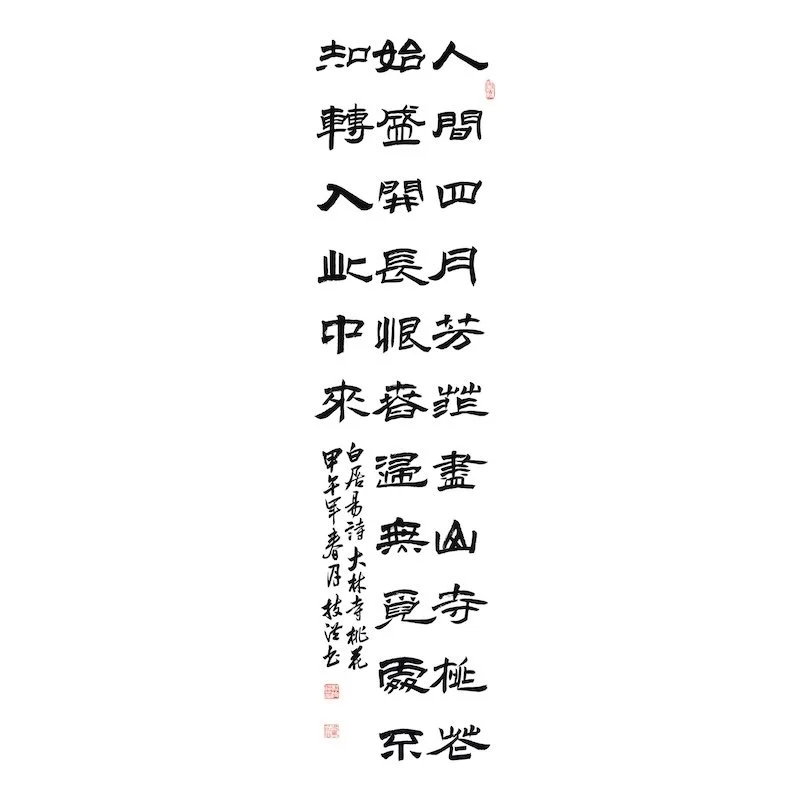 人間四月芳菲盡山寺桃花
始盛開長恨春歸無覓處不
知轉入此中來
白居易詩大林寺桃花
甲午年春月